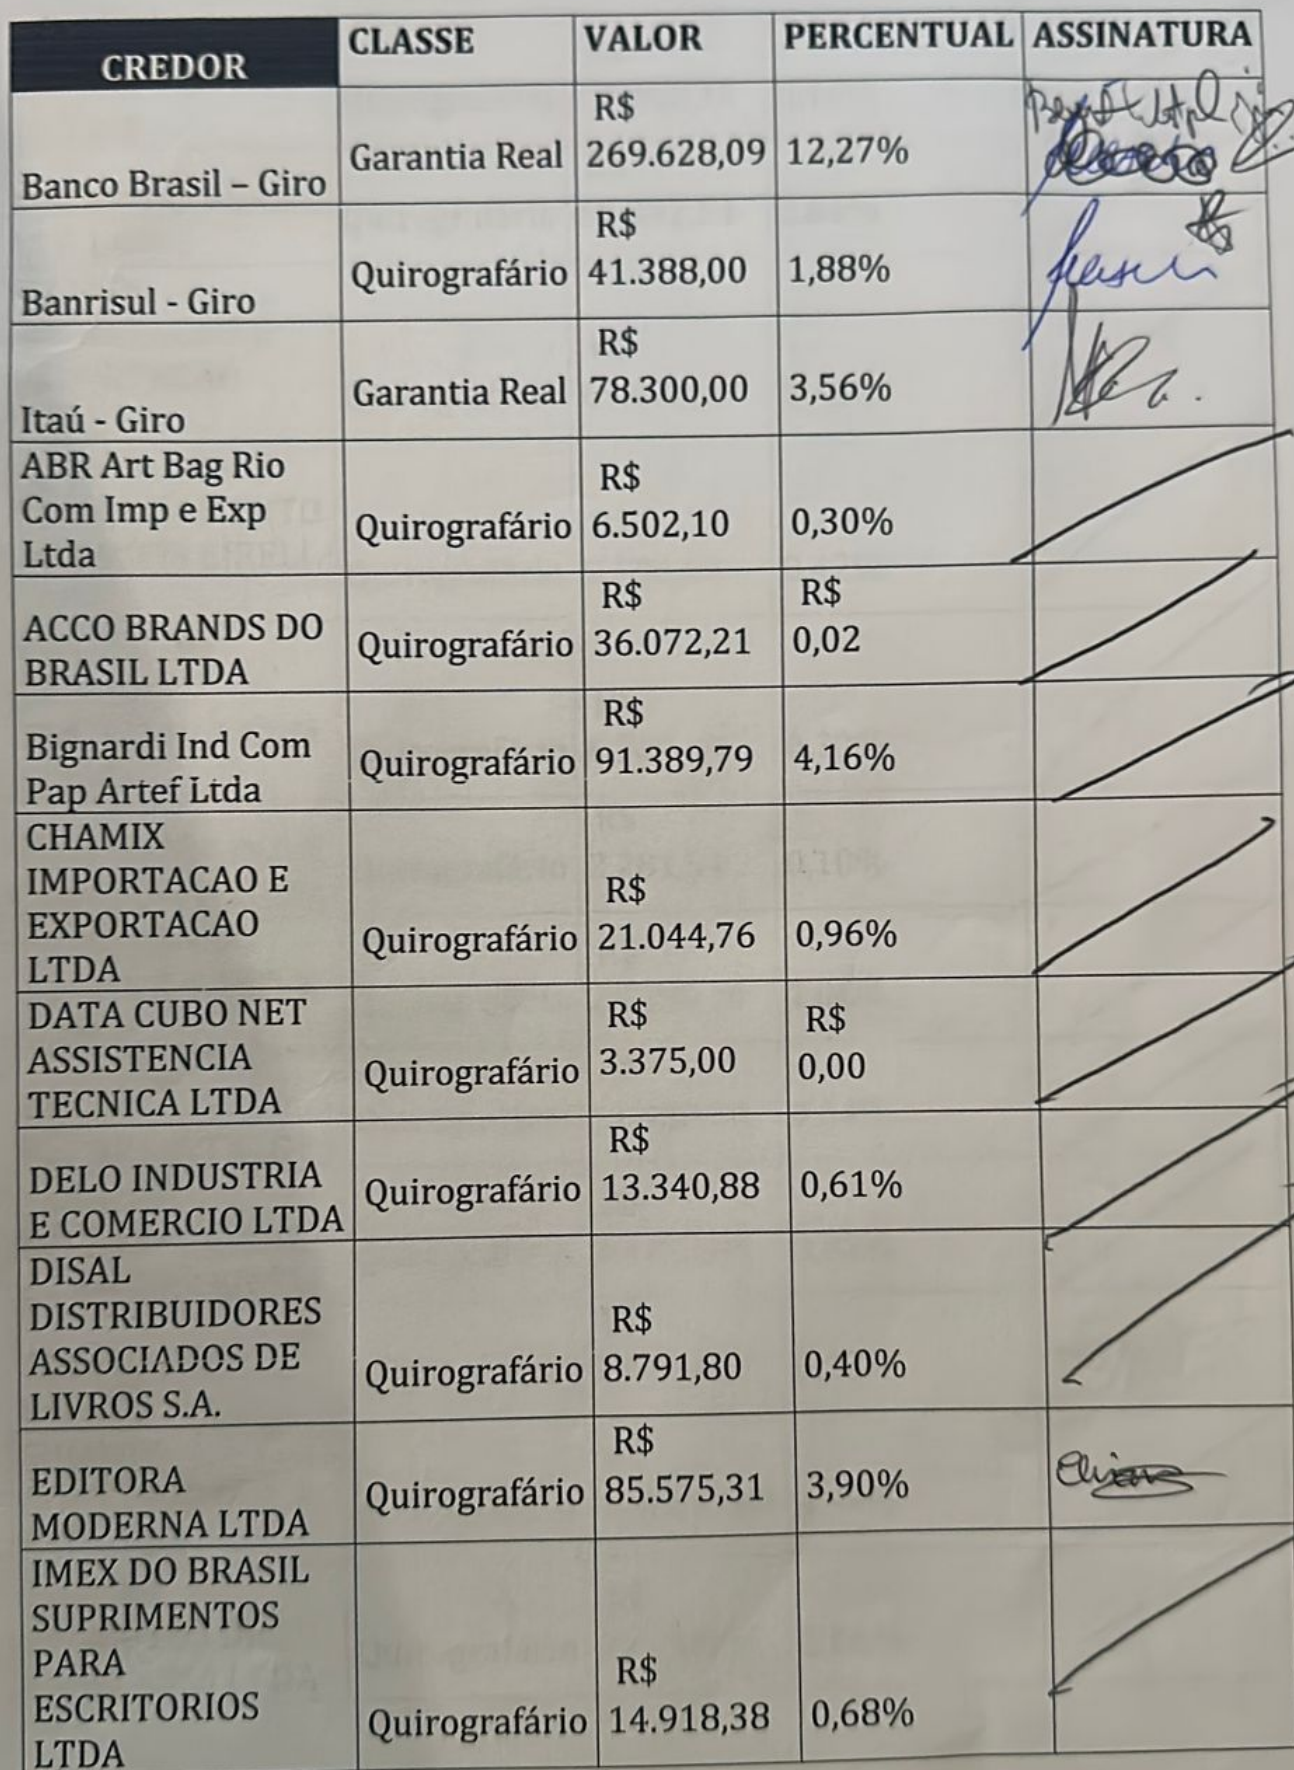 CREDOR CLASSE VALOR PERCENTUAL ASSINATURA
Banco Brasil – Giro Garantia Real R$ 269.628,09 12,27%
Banrisul - Giro Quirografário R$ 41.388,00 1,88%
Itaú - Giro Garantia Real R$ 78.300,00 3,56%
ABR Art Bag Rio
Com Imp e Exp
Ltda
Quirografário R$ 6.502,10 0,30%
ACCO BRANDS DO
BRASIL LTDA
Quirografário R$ 36.072,21 R$ 0,02
Bignardi Ind Com
Pap Artef Ltda
Quirografário R$ 91.389,79 4,16%
CHAMIX
IMPORTACAO E
EXPORTACAO
LTDA
Quirografário R$ 21.044,76 0,96%
DATA CUBO NET
ASSISTENCIA
TECNICA LTDA
Quirografário R$ 3.375,00 R$ 0,00
DELO INDUSTRIA
E COMERCIO LTDA
Quirografário R$ 13.340,88 0,61%
DISAL
DISTRIBUIDORES
ASSOCIADOS DE
LIVROS S.A.
Quirografário R$ 8.791,80 0,40%
EDITORA
MODERNA LTDA
Quirografário R$ 85.575,31 3,90%
IMEX DO BRASIL
SUPRIMENTOS
PARA
ESCRITORIOS
LTDA
Quirografário R$ 14.918,38 0,68%